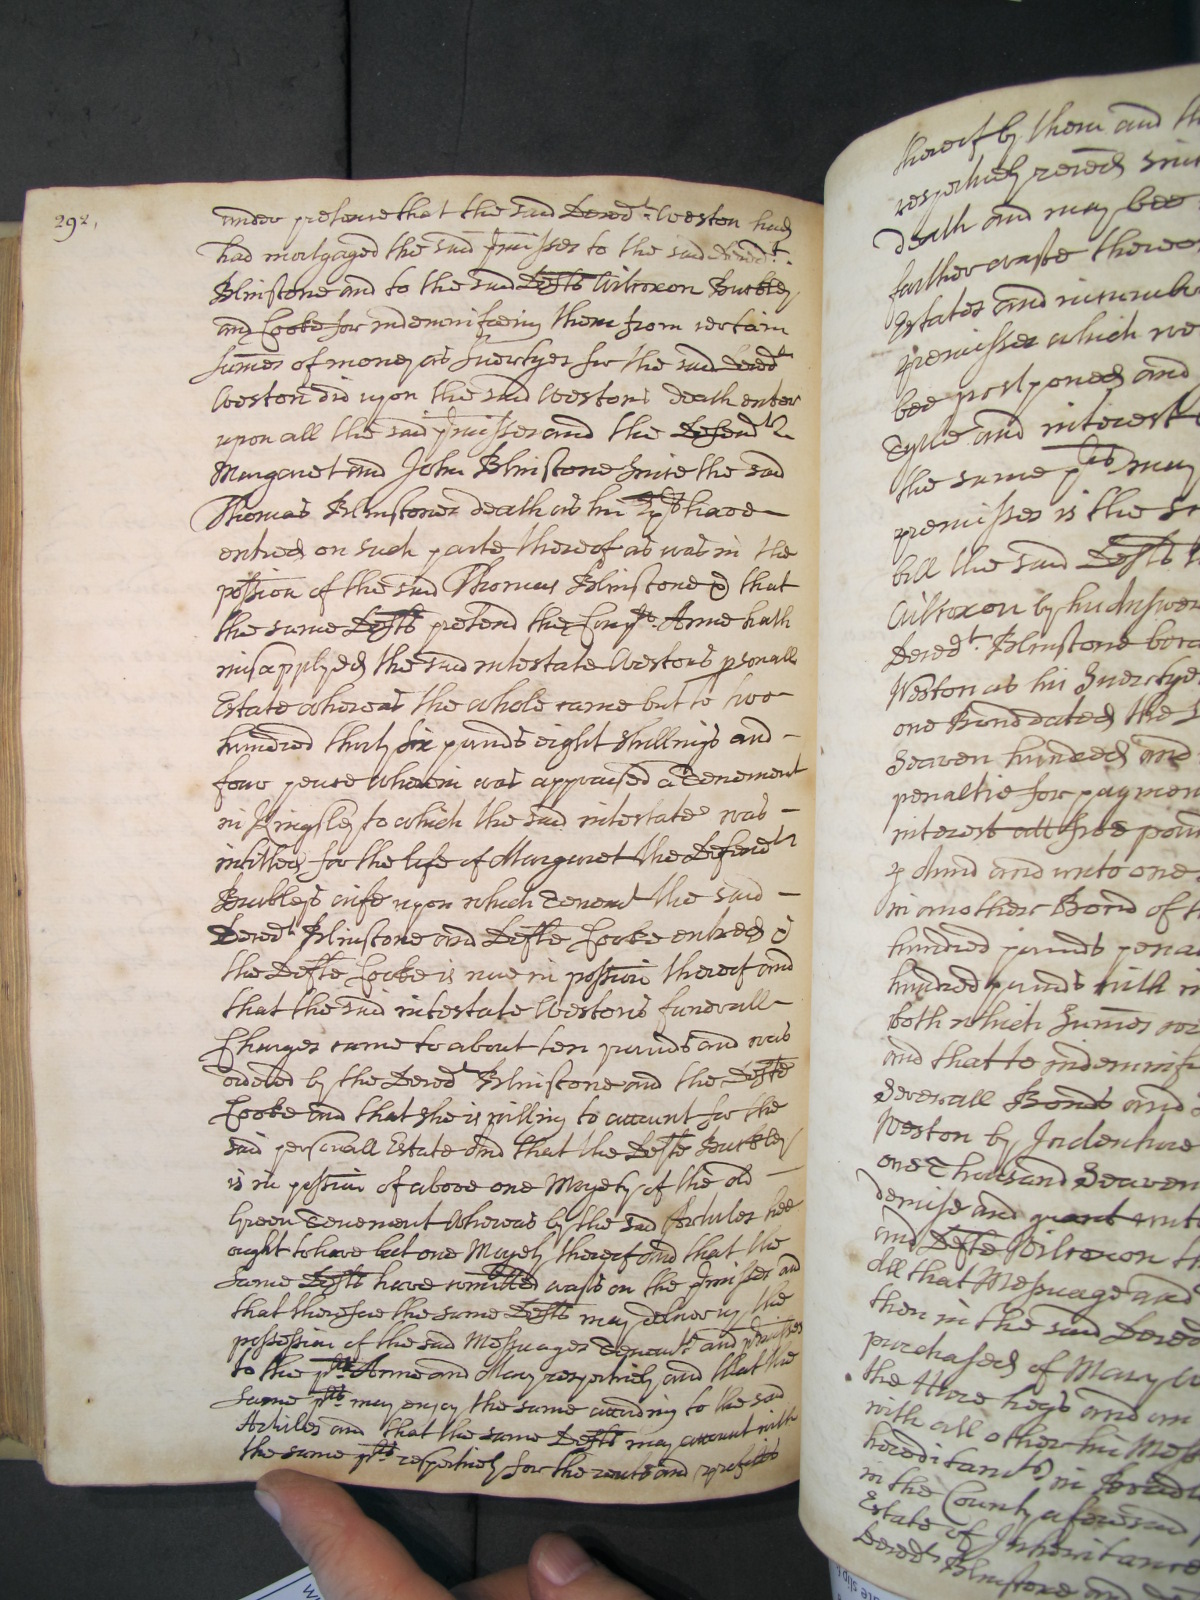 292.
under pretence that the said Deced.t Weston had
had mortgaged the said p̄misses to the said Deced.t
Blinstone and to the said Defts Wilcoxon Buckley
and Cooke for indemnifieing them from certain
sum̄es of money as Suertyes for the said Deced.t
Weston did upon the said Westons death enter
upon all the said p̄misses and the Defend.ts
Margaret and John Blinstone since the said
Thomas Blinstones death as his have
entred on such parte thereof as was in the
possion of the said Thomas Blinstone & that
the same Defts pretend the Comp.lt Anne hath
misapplyed the said intestate Westons p̱sonall
Estate whereas the whole came but to two
hundred thirty six pounds eight shillings and
four pence wherein was appraised a Tenement
in Kingsley to which the said intestate was
intitled for the life of Margaret the Defend.t
Buckleys wife upon which Tenem.t the said
Deced.t Blinstone and Defte Cooke entred &
the Defte Cooke is now in possion thereof and
that the said intestate Westons funerall
Charges came to about ten pounds and was
ordered by the Deced.t Blinstone and the Defte
Cooke and that she is willing to account for the
said personall Estate and that the Defte Buckley
is in possion of above one Moyety of the old
Green Tenement whereas by the said Articles hee
ought to have but one Moyety thereof and that the
same Defts have com̄itted waste on the p̄misses and
that therefore the same Defts may deliver up the
possession of the said Messuages Tenem.ts and p̄misses
to the p.lts Anne and Mary respectively and that the
same p.lts may enjoy the same according to the said
Articles and that the same Defts may account with
the same p.lts respectively for the rents and profitts
thereof by them and
respectively received since
death and may bee
farther waste thereon
Estates and
premisses which
bee postponed and
Tytle and interest
the same p.lts may
premisses is the
bill the said Defts
Wilcoxon by his Answer
Deced.t Blinstone
Weston as his Suertye
one Bond dated the
Seaven hundred and
penaltie for paymen
interest
and unto one
in another Bond of
hundred pounds
hundred pounds with
both which Sum̄es
and that to indemnifie
Severall Bonds and
Weston by Indenture
one Thousand Seaven
demise and grant unto
and Defte Wilcoxon
All that Messuage and
then in the said Deced
purchased of Mary
the Here heys and
with all other his Mess
hereditam.ts in
in the County aforesaid
Estate of Inheritance
Deced.t Blinstone and